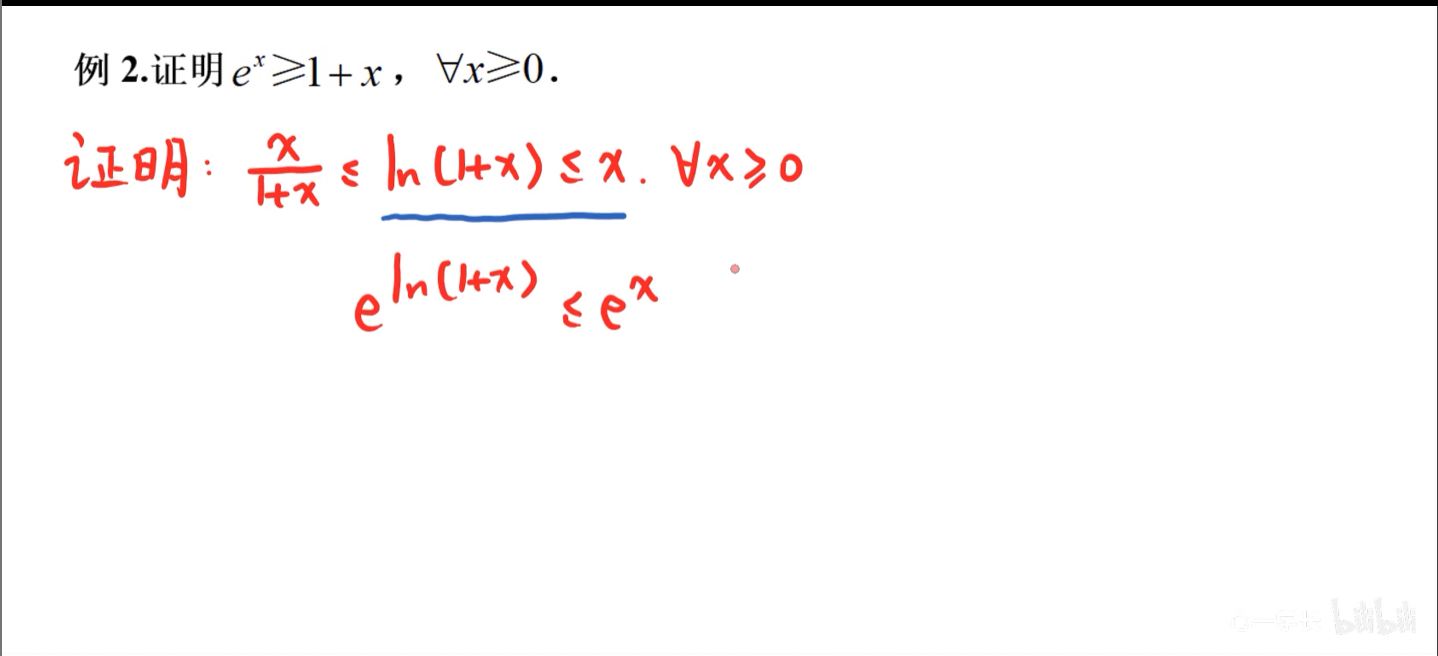 例 2.证明 eˣ≥1+x，∀x≥0.
证明: x/(1+x) ≤ ln(1+x) ≤ x. ∀x≥0
e^ln(1+x) ≤ e^x
bilibili